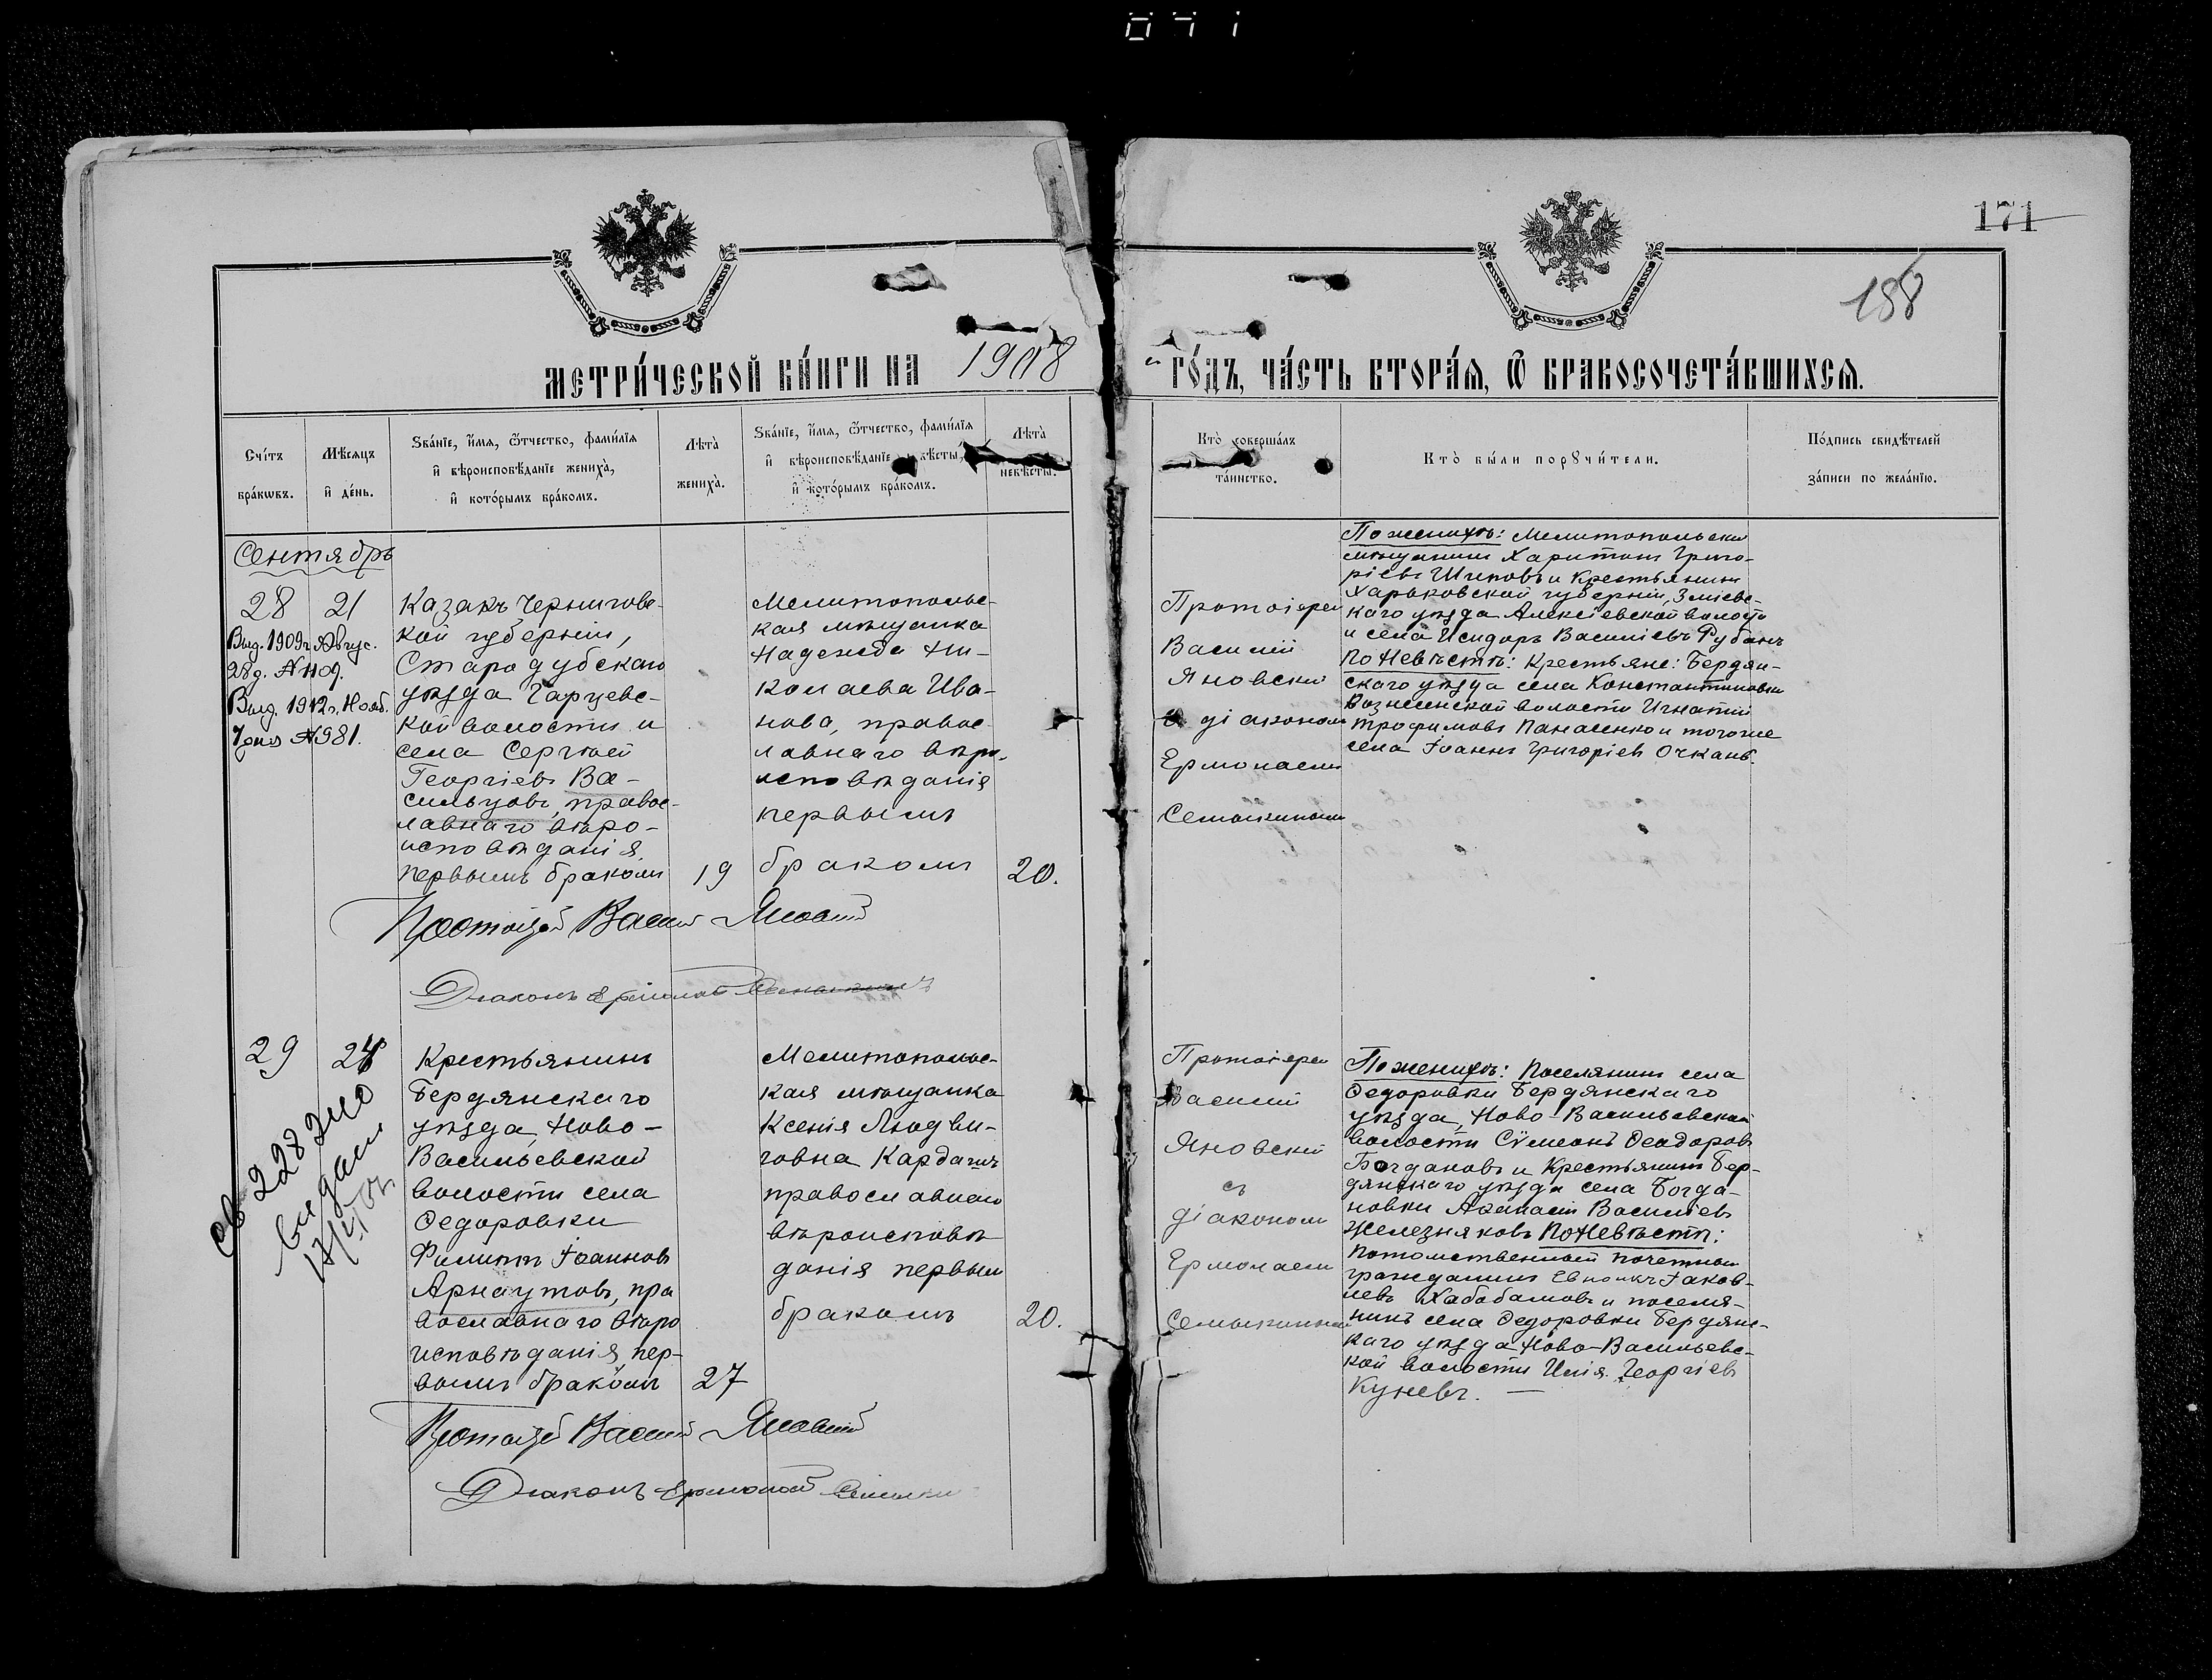 041
171
188
МЕТРИ́ЧЕСКОЙ КНИ́ГИ НА 1908
ГО́ДЪ, ЧА́СТЬ ВТОРА́Я, Ѿ БРАКОСОЧЕТА́ВШИХСЯ.
Сче́тъ бра́кѡвъ.
Мѣ́сяцъ и҆ де́нь.
Ѕва́нїе, и҆́мя, ѻ҆́тчество, фами́лїя
и҆ вѣроисповѣ́данїе жениха̀,
и҆ кото́рымъ бра́комъ.
Лѣта̀ жениха̀.
Ѕва́нїе, и҆́мя, ѻ҆́тчество, фами́лїя
и҆ вѣроисповѣ́данїе невѣ́сты,
и҆ кото́рымъ бра́комъ.
Лѣта̀
невѣ́сты.
Кто̀ соверша́лъ
та́инство.
Кто̀ бы́ли порꙋчи́тели.
По́дпись свидѣ́телей
за́писи по жела́нїю.
Сентябрь
28
21
Выд. 1909г. Авгус.
28д. № 1109.
Выд. 1912г. Нояб.
7 дня № 981.
Казакъ Чернигове-
кой губерніи,
Стародубскаго
уѣзда Гарцевс-
кой волости и
села Сергѣй
Георгіевъ Ва-
сильцовъ, правос-
лавнаго вѣро-
исповѣданія,
первымъ бракомъ
19
Мелитопольс-
кая мѣщанка
Надежда Ни-
колаева Ива-
нова, правос-
лавнаго вѣро-
исповѣданія
первымъ
бракомъ
20.
Протоіерей
Василій
Яновскій
съ діакономъ
Ермолаемъ
Семыкинымъ
По женихѣ: Мелитопольскій
мѣщанинъ Харитонъ Григо-
ріевъ Шиповъ и крестьянинъ
Харьковской губерніи, Зміевс-
каго уѣзда Алексѣевской волости
и села Исидоръ Василіевъ Рубанъ
По Невѣстѣ: Крестьяне: Бердян-
скаго уѣзда села Константиновки
Вознесенской волости Игнатій
Трофимовъ Панасенко и тогоже
села Іоаннъ Григоріевъ Очкань.
Протоіерей Василій Яновскій
Діаконъ Ермолай Семыкинъ
29
24
Св 228 мною
выданъ
Крестьянинъ
Бердянскаго
уѣзда, Ново-
Васильевской
волости села
Ѳедоровки
Филиппъ Іоанновъ
Арнаутовъ, пра
вославнаго вѣро
исповѣданія, пер-
вымъ бракомъ
27
Мелитопольс-
кая мѣщанка
Ксенія Людви-
говна Кардашъ
православнаго
вѣроисповѣ
данія первымъ
бракомъ
20.
Протоіерей
Василій
Яновскій
съ
діакономъ
Ермолаемъ
Семыкинымъ
По женихѣ: Поселянинъ села
Ѳедоровки Бердянскаго
уѣзда, Ново-Васильевской
волости Сѵмеонъ Ѳеодоровъ
Богдановъ и Крестьянинъ Бер-
дянскаго уѣзда села Богда-
новки Аѳанасій Василіевъ
Железняковъ По Невѣстѣ:
Потомственный почетный
гражданинъ Іаков-
левъ и поселя-
нинъ села Ѳедоровки Бердянс-
каго уѣзда Ново-Васильевс-
кой волости Илія Георгіевъ
Куневъ. —
Протоіерей Василій Яновскій
Діаконъ Ермолай Семыкинъ